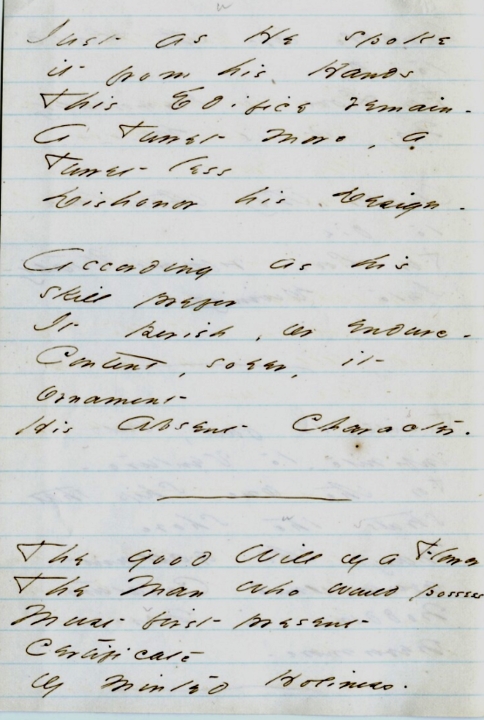 Just as He spoke
it from his Hands
This Edifice remain -
A Turret more, a
Turret less
Dishonor his Design -
According as his
skill prefer
It perish, or endure -
Content, soe'er, it
ornament
His Absent Character.
The good Will of a Flower
The Man who would possess
Must first present
Certificate
Of minted Holiness.